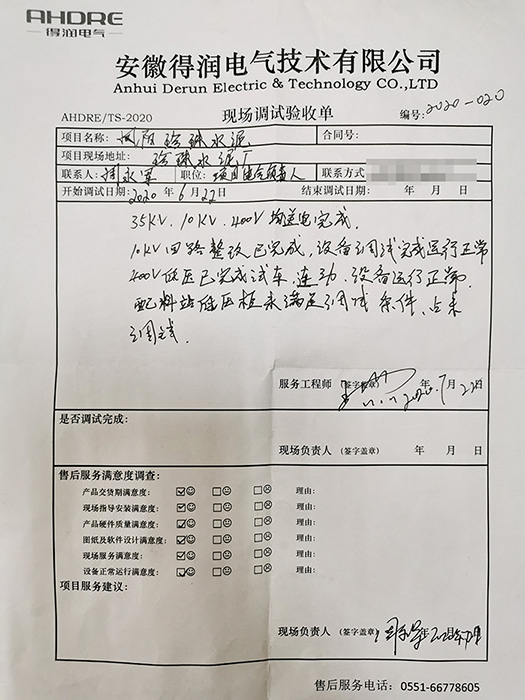 AHDRE
得润电气
安徽得润电气技术有限公司
Anhui Derun Electric & Technology CO.,LTD
AHDRE/TS-2020 现场调试验收单 编号: 2020-020
项目名称: 凤阳珍珠水泥 合同号:
项目现场地址: 珍珠水泥厂
联系人: 职位: 项目 负责人 联系方式
开始调试日期: 2020 年 6 月 22 日 结束调试日期: 年 月 日
35KV. 10KV. 400V 均送电完成.
10KV 回路整改已完成, 设备调试完成运行正常
400V 低压已完成试车, 连动, 设备运行正常.
配料站低压柜未满足调试条件, 占未
调试.
服务工程师 (签字盖章) 2020年 7 月 22 日
是否调试完成:
现场负责人 (签字盖章) 年 月 日
售后服务满意度调查:
产品交货期满意度: 理由:
现场指导安装满意度: 理由:
产品硬件质量满意度: 理由:
图纸及软件设计满意度: 理由:
现场服务满意度: 理由:
设备正常运行满意度: 理由:
项目服务建议:
现场负责人 (签字盖章)
售后服务电话: 0551-66778605